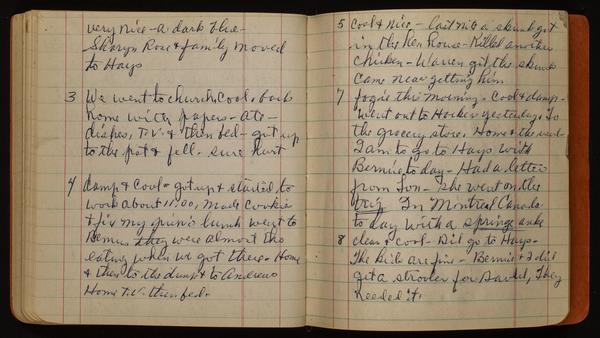 very nice - a dark blue -
Sharyn Rose & family moved
to Hays
3 We went to church, cool, back
home with papers - ate -
dishes, T.V. & then bed - got up
to the pot & fell. sure hurt
4 damp & cool - got up & started to
work about 11:00, made cookies
& fix my lunch went to
Bernies they were almost thro
eating when we got there - Home
& then to the dump & to Andrews
Home T.V. then bed.
5 Cool & nice - last nite a skunk got
in the Hen House - Killed another
chicken - Warren got the skunk
came near getting him
7 fogie this morning - Cool & damp -
Went out to yesterday, To
the grocery store, Home & the
I am to go to Hays with
Bernie to day - Had a letter
from - she went on the
In Montreal Canada
to day with a
8 clear & cool - Did go to Hays -
The kids are fine - Bernie & I did
get a stroller for , They
needed it.